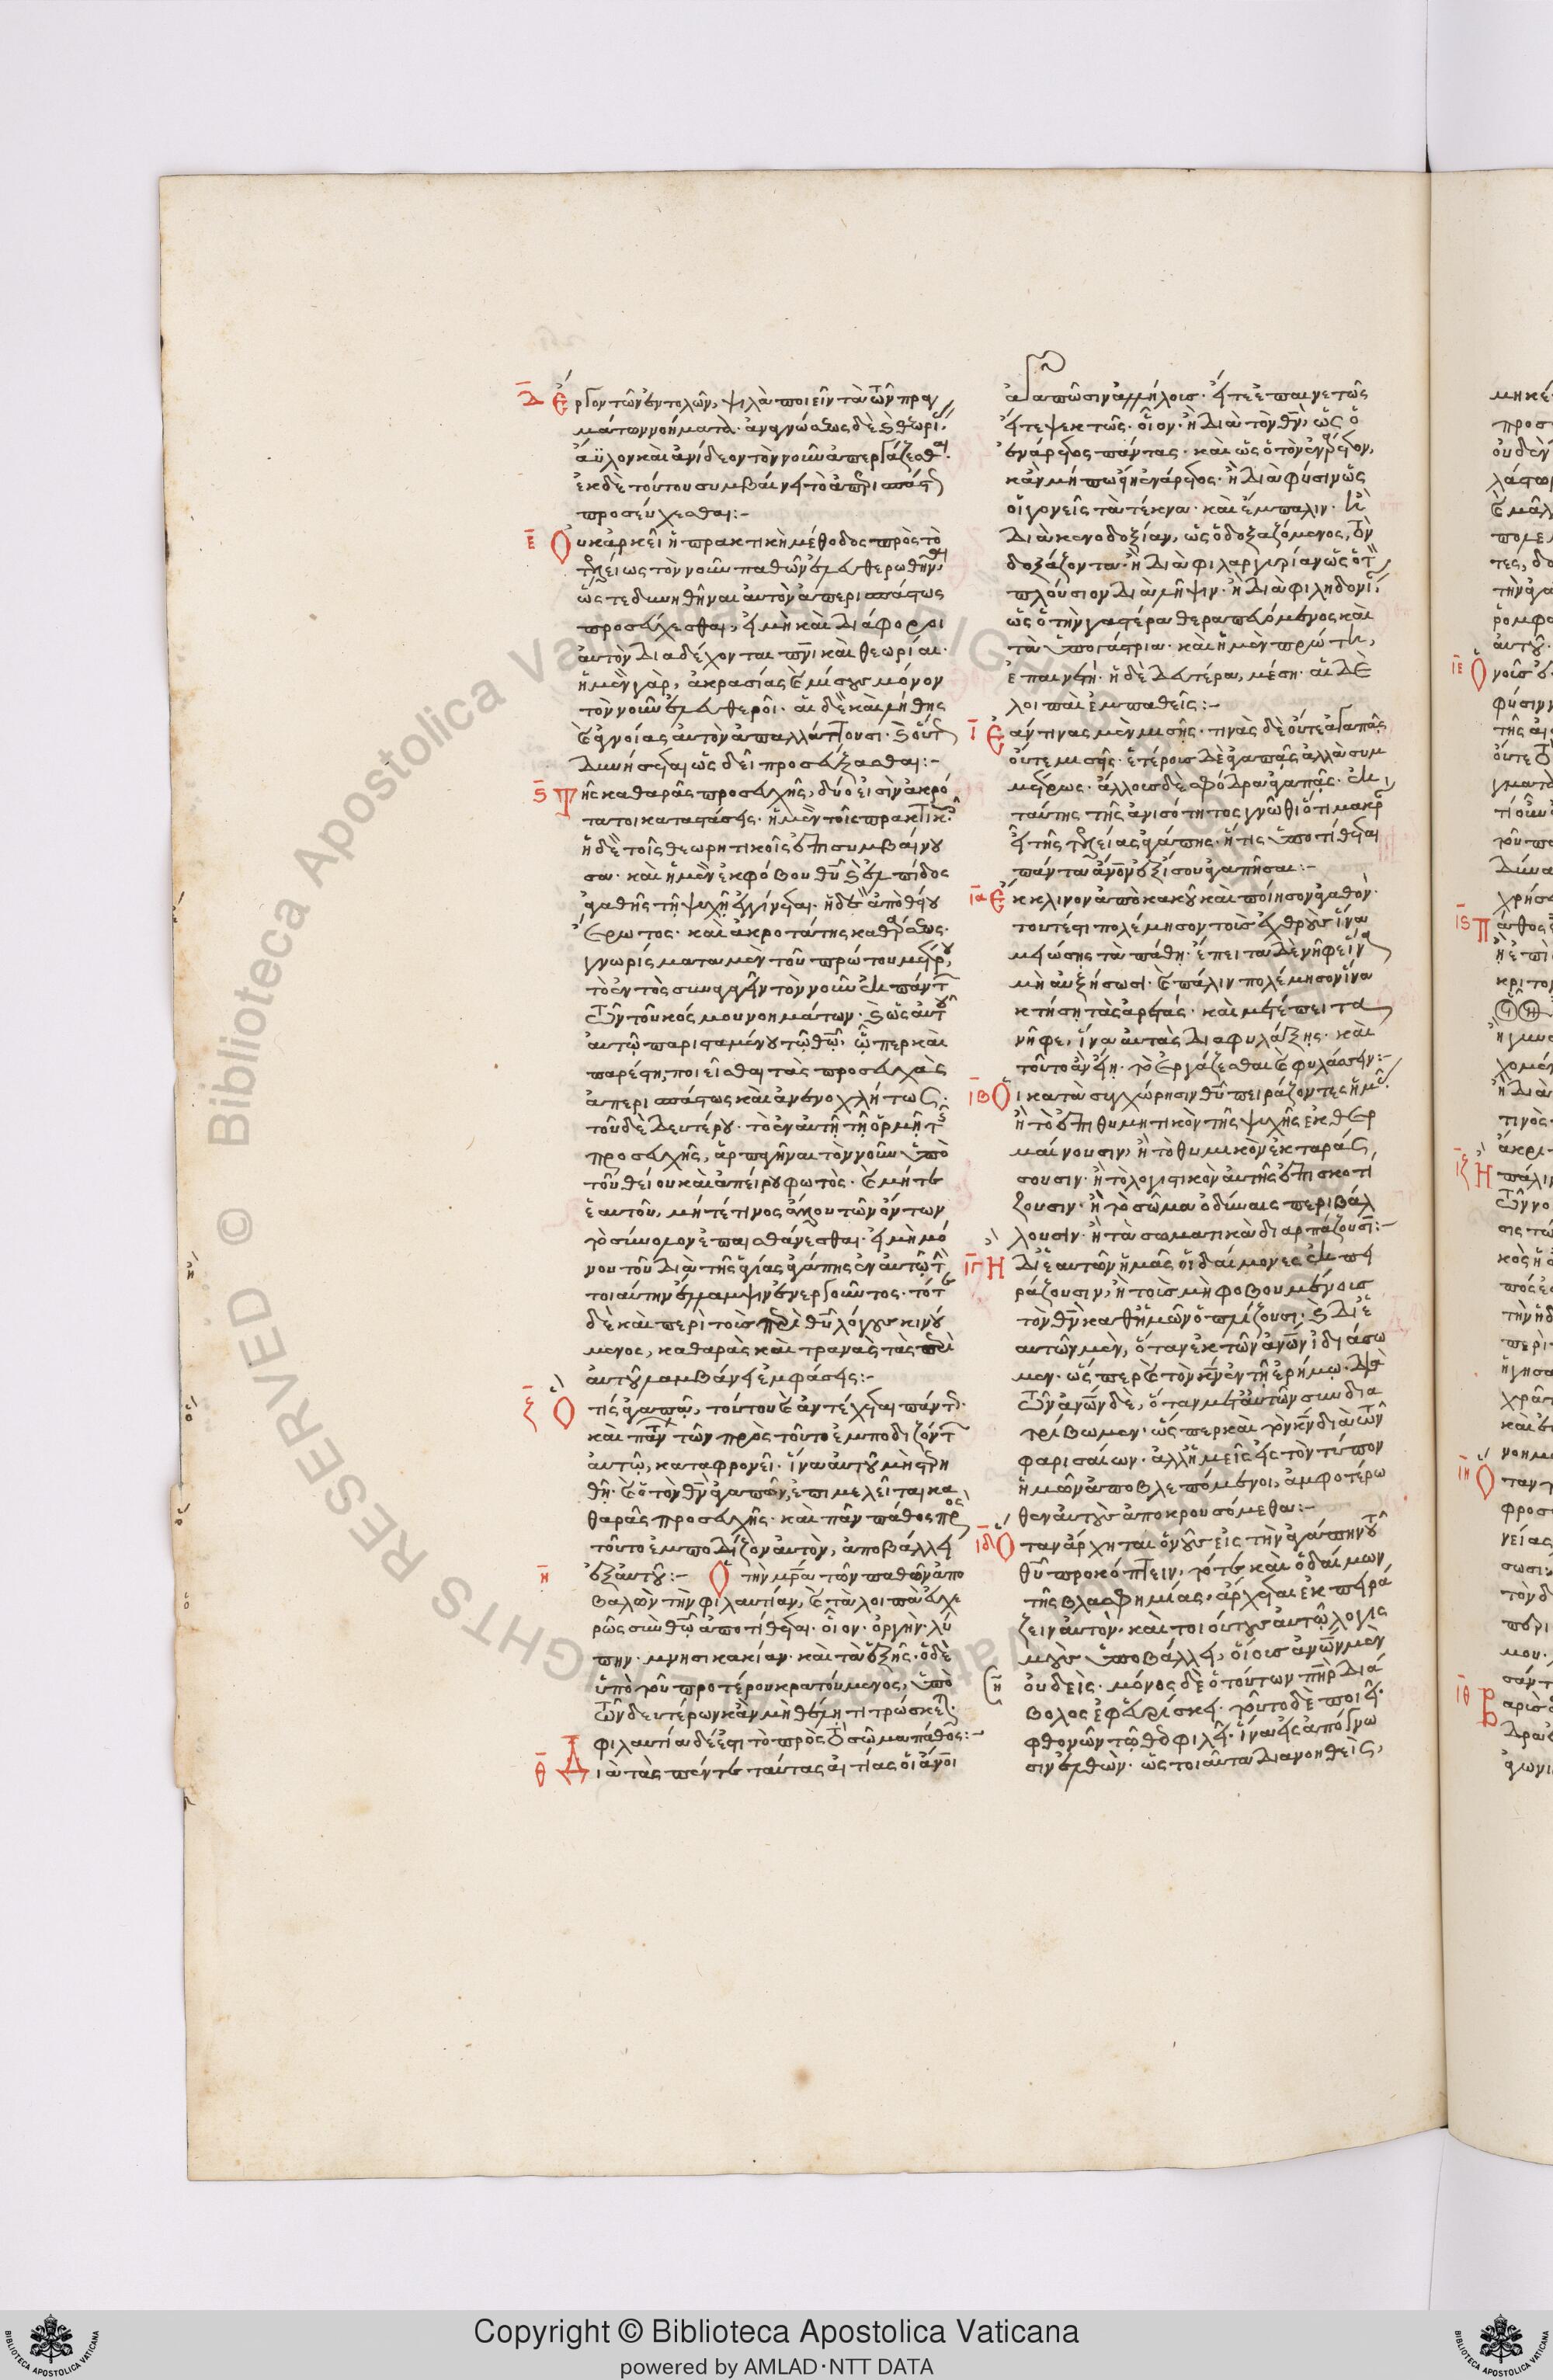 Δ̅ Ἔργον τῶν ἐντολῶν, ψιλὰ ποιεῖν τὰ τῶν πραγ
μάτων νοήματα· ἀναγνώσεως δὲ καὶ θεωρί
ἄϋλον καὶ ἀνίδεον τὸν νοῦν ἀπεργάζεσθαι·
ἐκ δὲ τούτου συμβαίνει τὸ ἀπερισπάστ
προσεύχεσθαι:-
Ε̅ Οὐκ ἀρκεῖ ἡ πρακτικὴ μέθοδος πρὸς τὸ
τελείως τὸν νοῦν παθῶν ἐλευθερωθῆναι,
ὥστε δυνηθῆναι αὐτὸν ἀπερισπάστως
προσεύχεσθαι, εἰ μὴ καὶ διάφοροι
αὐτὸν διαδέχονται πν̅ι καὶ θεωρίαι·
ἡ μὲν γὰρ, ἀκρασίας καὶ μίσους μόνον
τὸν νοῦν ἐλευθεροῖ· αἱ δὲ καὶ λήθης
καὶ ἀγνοίας αὐτὸν ἀπαλλάττουσι· καὶ οὕτ
δυνήσεται ὡς δεῖ προσεύξασθαι:-
Ϛ̅ Τῆς καθαρᾶς προσευχῆς, δύο εἰσὶν ἀκρό
ταται καταστάσεις· ἡ μὲν τοῖς πρακτικοῖς
ἡ δὲ τοῖς θεωρητικοῖς ἐπισυμβαίνου
σα· καὶ ἡ μὲν ἐκ φόβου θυ̅ καὶ ἐλπίδος
ἀγαθῆς τῇ ψυχῇ ἐγγίνεται· ἡ δὲ ἀπὸ θείου
ἔρωτος· καὶ ἀκροτάτης καθάρσεως·
γνωρίσματα μὲν τοῦ πρώτου μέτρου,
τὸ ἐν τὸς συναγαγεῖν τὸν νοῦν ἐκ πάντ
τῶν τοῦ κόσμου νοημάτων· καὶ ὡς αὐτοῦ
αὐτῷ παρισταμένου τῷ θῶ̅, ὥσπερ καὶ
παρέστη, ποιεῖσθαι τὰς προσευχὰς
ἀπερισπάστως καὶ ἀνενοχλήτως·
τοῦ δὲ δευτέρου· τὸ ἐν αὐτῇ τῇ ὁρμῇ τῆς
προσευχῆς, ἁρπαγῆναι τὸν νοῦν ὑπὸ
τοῦ θείου καὶ ἀπείρου φωτὸς· καὶ μήτε
ἑαυτοῦ, μήτέ τινος ἄλλου τῶν ὄντων
τὸ σύνολον ἐπαισθάνεσθαι· εἰ μὴ μό
νου τοῦ διὰ τῆς ἁγίας ἀγάπης ἐν αὐτῷ τ
τοιαύτην ἔλλαμψιν ἐνεργοῦντος· τότε
δὲ καὶ περὶ τοὺς περὶ θυ̅ λόγους κινού
μενος, καθαρὰς καὶ τρανὰς τὰς περὶ
αὐτοῦ λαμβάνει ἐμφάσεις:-
Ζ̅ Ὅ τις ἀγαπᾷ, τούτου καὶ ἀντέχεται πάντ·
καὶ πάντων τῶν πρὸς τοῦτο ἐμποδιζόντ
αὐτῷ, καταφρονεῖ· ἵνα αὐτοῦ μὴ στερη
θῇ· καὶ ὁ τὸν θν̅ ἀγαπῶν, ἐπιμελεῖται κα
θαρᾶς προσευχῆς· καὶ πᾶν πάθος πρὸς
τοῦτο ἐμποδίζον αὐτὸν, ἀποβάλλει
Η̅ ἐξ αὐτοῦ:- Ὁ τὴν μρ̅α τῶν παθῶν ἀπο
βαλὼν τὴν φιλαυτίαν, καὶ τὰ λοιπὰ εὐχε
ρῶς σὺν θῶ̅ ἀποτίθεται· οἷον· ὀργὴν· λύ
πην· μνησικακίαν· καὶ τὰ ἑξῆς· ὁ δὲ
ὑπὸ τοῦ προτέρου κρατούμενος, ὑπὸ
τῶν δευτέρων κἂν μὴ θέλῃ τιτρώσκετ·
φιλαυτία δέ ἐστι τὸ πρὸς τὸ σῶμα πάθος:-
Θ̅ Διὰ τὰς πέντε ταύτας αἰτίας οἱ ἄνοι̅
ἀγαπῶσιν ἀλλήλοις· εἴτε ἐπαινετῶς
εἴτε ψεκτῶς· οἷον· ἢ διὰ τὸν θν̅, ὡς ὁ
ἐνάρετος πάντας· καὶ ὡς ὁ τὸν ἐνάρετον,
κἂν μήπω ᾖ ἐνάρετος· ἢ διὰ φύσιν ὡς
οἱ γονεῖς τὰ τέκνα· καὶ ἔμπαλιν· ἢ
διὰ κενοδοξίαν, ὡς ὁ δοξαζόμενος, τὸν
δοξάζοντα· ἢ διὰ φιλαργυρίαν ὡς ὁ τ
πλούσιον διὰ λῆψιν· ἢ διὰ φιληδονί,
ὡς ὁ τὴν γαστέρα θεραπευόμενος καὶ
τὰ ὑπογάστρια· καὶ ἡ μὲν πρώτη,
ἐπαινετή· ἡ δὲ δευτέρα, μέση· αἱ δὲ
λοιπαὶ ἐμπαθεῖς:-
Ι̅ Ἐάν τινας μὲν μισῇς· τινὰς δὲ οὔτε ἀγαπᾷς
οὔτε μισῇς· ἑτέροις δὲ ἀγαπᾷς ἀλλὰ συμ
μέτρως· ἄλλοις δὲ σφόδρα ἀγαπᾷς· ἐκ
ταύτης τῆς ἀνισότητος γνῶθι ὅτι μακρ
εἶ τῆς τελείας ἀγάπης· ἥτις ὑποτίθεται
πάντα ἄνον̅ ἐξίσου ἀγαπῆσαι:-
ΙΑ̅ Ἔκκλινον ἀπὸ κακοῦ καὶ ποίησον ἀγαθόν·
τουτέστι πολέμησον τοὺς ἐχθροὺς ἵνα
μειώσῃς τὰ πάθη· ἔπειτα δὲ νῆφε ἵνα
μὴ αὐξήσωσι· καὶ πάλιν πολέμησον ἵνα
κτήσῃ τὰς ἀρετάς· καὶ μετέπειτα
νῆφε, ἵνα αὐτὰς διαφυλάξῃς· καὶ
τοῦτο ἂν εἴη· τὸ ἐργάζεσθαι καὶ φυλάσσειν:-
ΙΒ̅ Οἱ κατὰ συγχώρησιν θυ̅ πειράζοντες ἡμᾶς
ἢ τὸ ἐπιθυμητικὸν τῆς ψυχῆς ἐκθερ
μαίνουσιν, ἢ τὸ θυμικὸν ἐκταράσ
σουσιν· ἢ τὸ λογιστικὸν αὐτῆς ἐπισκοτί
ζουσιν· ἢ τὸ σῶμα ὀδύναις περιβάλ
λουσιν· ἢ τὰ σωματικὰ διαρπάζουσι:-
ΙΓ̅ Ἢ δι' ἑαυτῶν ἡμᾶς οἱ δαίμονες ἐκπει
ράζουσιν, ἢ τοὺς μὴ φοβουμένους
τὸν θν̅ καθ' ἡμῶν ὁπλίζουσι· καὶ δι' ἑ
αυτῶν μὲν, ὅταν ἐκ τῶν ἀνω̅ν ἰδιάσω
μεν· ὥσπερ καὶ τὸν κν̅ ἐν τῇ ἐρήμῳ· διὰ
τῶν ἀνω̅ν δὲ, ὅταν μετ' αὐτῶν συνδια
τρίβωμεν· ὥσπερ καὶ τὸν κν̅ διὰ τῶν
φαρισαίων· ἀλλ' ἡμεῖς εἰς τὸν τύπον
ἡμῶν ἀποβλεπόμενοι, ἀμφοτέρω
θεν αὐτοὺς ἀποκρουσόμεθα:-
ΙΔ̅ Ὅταν ἄρχηται ὁ νοῦς εἰς τὴν ἀγάπην τοῦ
θυ̅ προκόπτειν, τότε καὶ ὁ δαίμων
τῆς βλασφημίας, ἄρχεται ἐκπειρά
ζειν αὐτὸν, καὶ τοιούτους αὐτῷ λογισ
μοὺς ὑποβάλλει, οἵους ἀνω̅ν μὲν
οὐδεὶς· μόνος δὲ ὁ τούτων πη̅ρ διά
βολος ἐφευρίσκει· τοῦτο δὲ ποιεῖ·
φθονῶν τῷ θεοφιλεῖ· ἵνα εἰς ἀπόγνω
σιν ἐλθὼν· ὡς τοιαῦτα διανοηθεὶς,
Copyright © Biblioteca Apostolica Vaticana
powered by AMLAD·NTT DATA